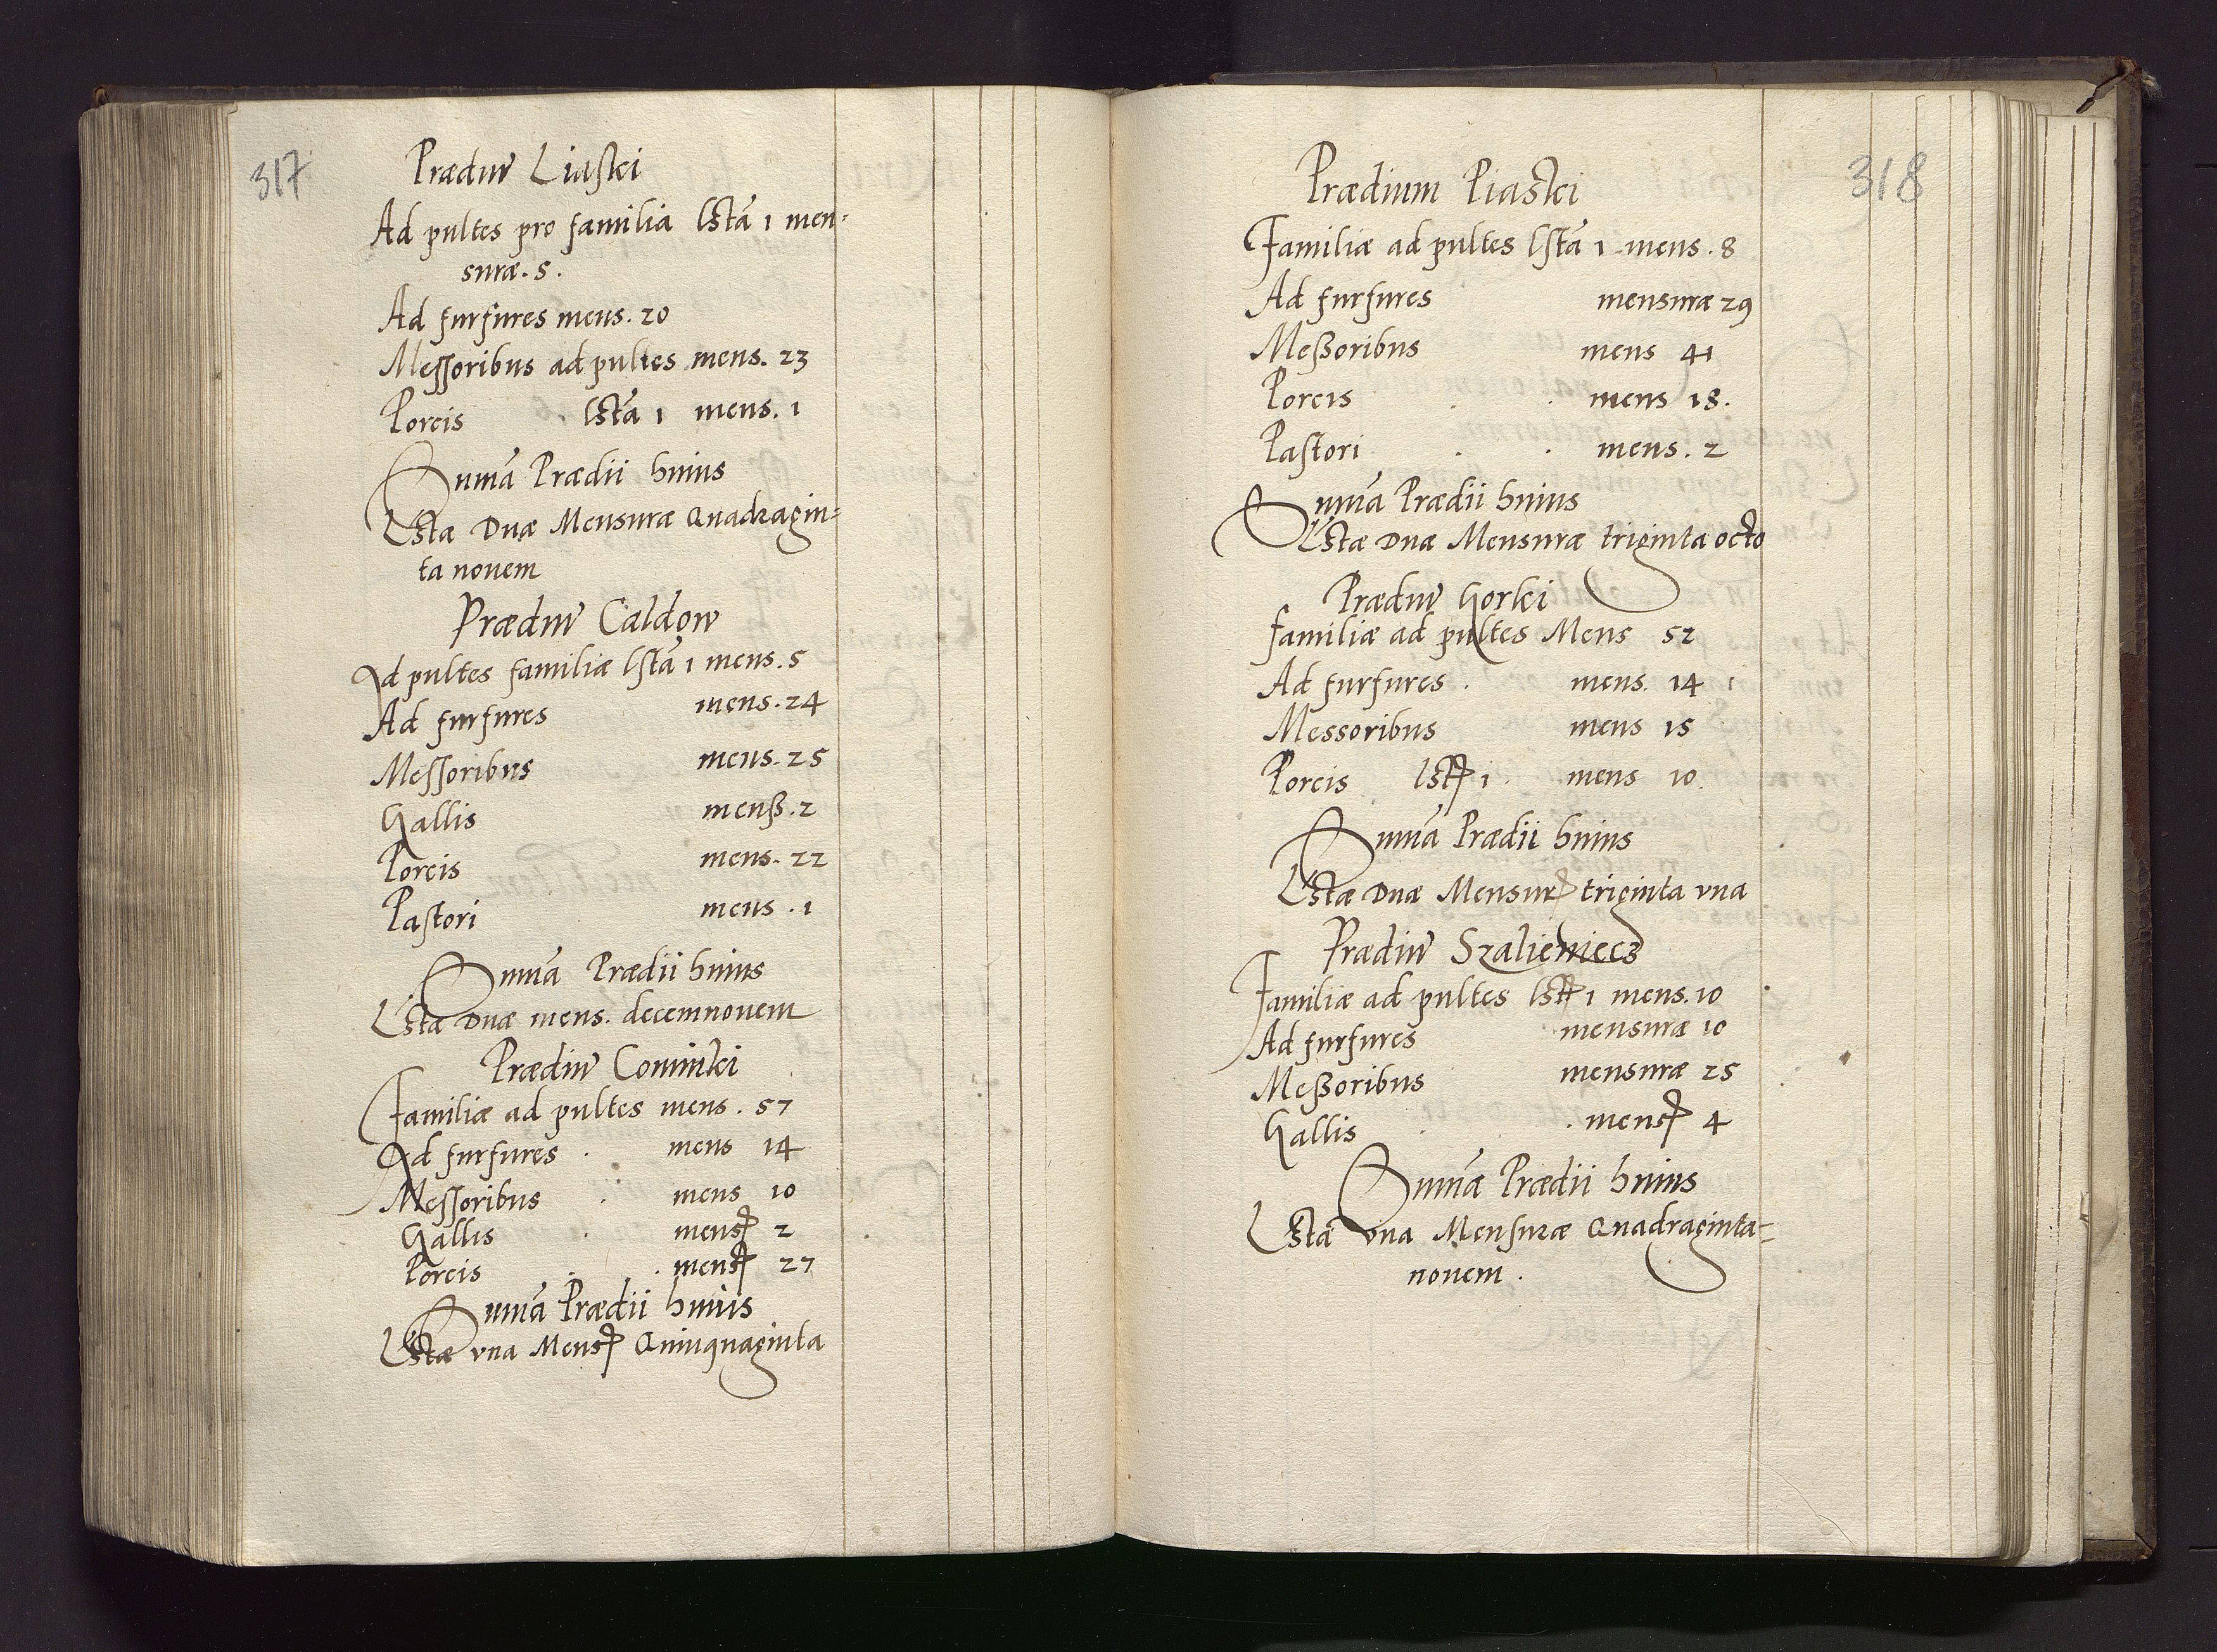 317
Prædiũ Liaski
Ad pultes pro familia lstã 1 men-
suræ. 5.
Ad furfures mens. 20
Messoribus ad pultes mens. 23
Porcis lstã 1 mens. 1
Sumã Prædii huius
Lsta Duæ Mensuræ Quadragin-
ta novem
Prædiũ Caldow
Ad pultes familiæ lstã 1 mens. 5
Ad furfures mens. 24
Messoribus mens. 25
Gallis menß. 2
Porcis mens. 22
Pastori mens. 1
Sumã Prædii huius
Lsta Duæ mens. decemnovem
Prædiũ Cominki
Familiæ ad pultes mens. 57
Ad furfures mens 14
Messoribus mens 10
Gallis mensꝝ 2
Porcis mensꝝ 27
Sumã Prædii huius
Lstæ vna Mensꝝ Quinquaginta
318
Prædium Piaski
Familiæ ad pultes lstã 1 mens. 8
Ad furfures mensuræ 29
Meßoribus mens 41
Porcis mens 18.
Pastori mens. 2
Sumã Prædii huius
Lstæ Duæ Mensuræ triginta octo
Prædiũ Gorki
familiæ ad pultes Mens 52
Ad furfures mens. 14
Messoribus mens 15
Porcis lstꝝ 1 mens 10.
Sumã Prædii huius
Lstæ Duæ Mensurꝝ triginta vna
Prædiũ Szalieniecz
Familiæ ad pultes lstꝝ 1 mens. 10
Ad furfures mensuræ 10
Meßoribus mensuræ 25
Gallis mensꝝ 4
Sumã Prædii huius
Lsta vna Mensuræ Quadraginta-
novem.